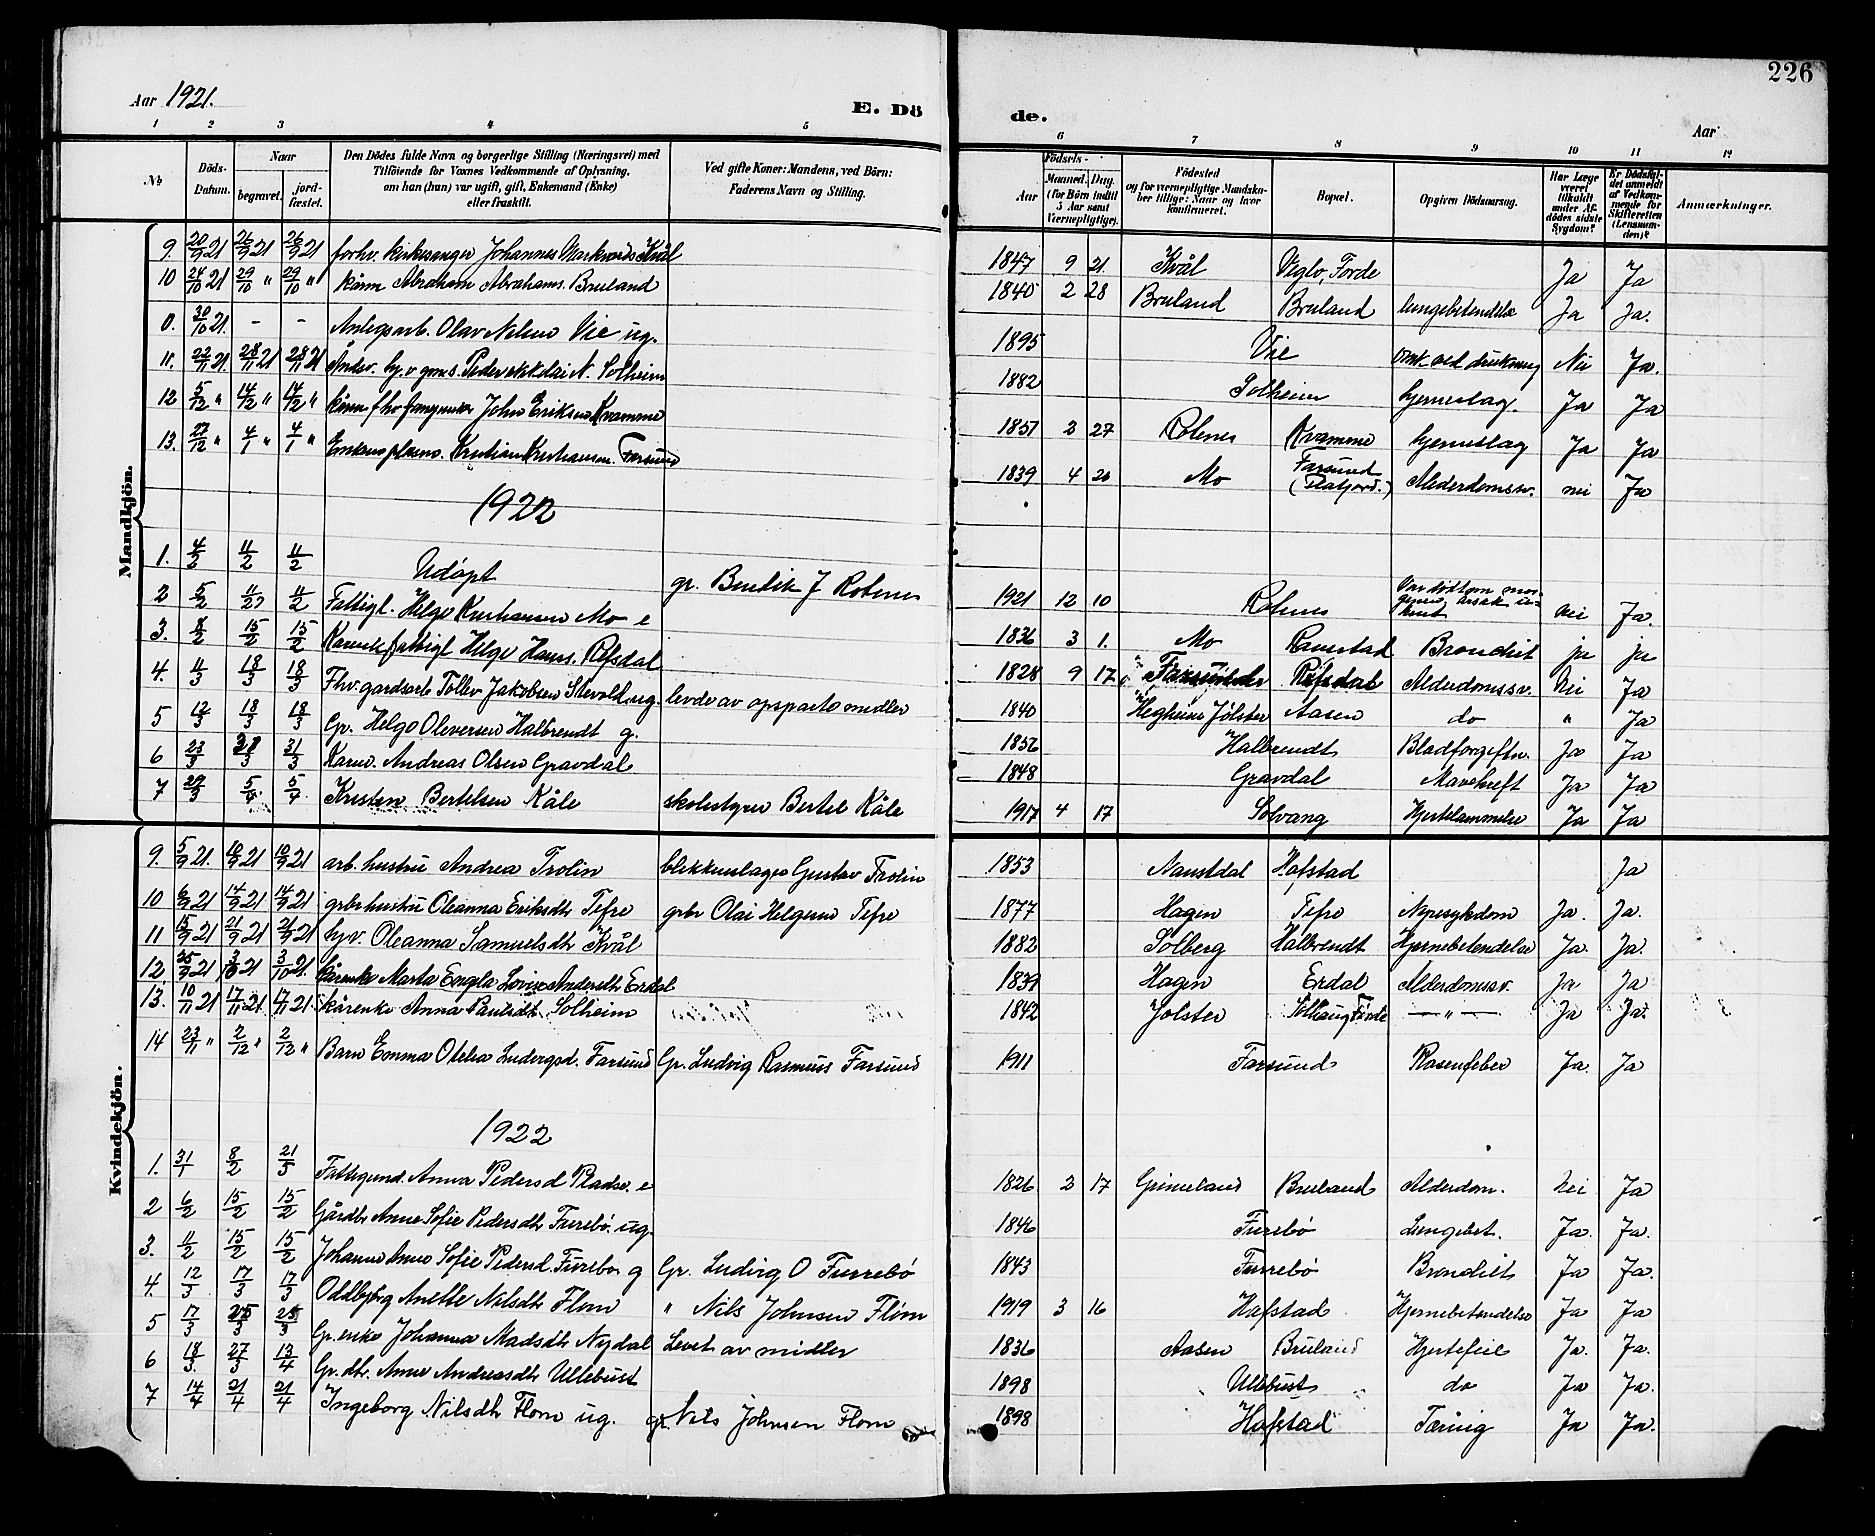 226
Aar 1921.
E. Dö
de.
Aar
1 2 3 4 5
6 7 8 9 10 11 12
№
Döds-Datum.
Naar
begravet.
jord-fæstet.
Den Dödes fulde Navn og borgerlige Stilling (Næringsvei) med
Tilföiende for Voxnes Vedkommende af Oplysning,
om han (hun) var ugift, gift, Enkemand (Enke)
eller fraskilt.
Ved gifte Koner: Mandens, ved Börn:
Faderens Navn og Stilling.
Födsels-
Aar
Maaned. Dag.
(for Börn indtil
5 Aar samt
Værnepligtige).
Födested
og for værnepligtige Mandskaber tillige: Naar og hvor konfirmeret.
Bopæl.
Opgiven Dödsaarsag.
Har Læge været tilkaldt under Afdödes sidste Sygdom?
Er Dödsfaldet anmeldt af Vedkommende for Skifteretten (Lensmanden)?
Anmærkninger.
Mandkjön.
9. 20/9 21 26/9 21 26/9 21 forhv. kirkesanger Johannes Markvards Kvål 1847 9 21 Kvål Veglo, Förde Ja Ja
10 24/10 21 29/10 " 29/10 " kårm Abraham Abrahams. Bruland 1840 2 28 Bruland Bruland lungebetendelse Ja Ja.
0. 30/10 21. - - Anlegsarb. Olav Nilsen Vie ug. 1895 Vie omk. ved drukning Nei Ja.
11. 22/11 21. 28/11 21 28/11 21 N. Solheim 1882 Solheim hjerneslag. Ja Ja
12 5/12 " 14/12 " 14/12 " John Eriksen Kvamme 1851 2 27 Robnes Kvamme hjerneslag Ja Ja
13. 27/12 " 4/1 " 4/1 " Kristian Kristiansen. Farsund 1839 4 20 Mo Farsund Alderdomssv. nei Ja
1922
1. 4/2 11/2 11/2 Udöpt gr. Bendik J Robnes 1921 12 10 Robnes nei Ja.
2 5/2 11/2 11/2 Fattigl. Helge Kristiansen Mo e 1836 3 1. Mo Ramstad Bronchit ja ja
3. 8/2 15/2 15/2 Helge Hans. Refsdal 1828 9 17 Refsdal Alderdomssv. Nei Ja
4. 11/3 18/3 18/3 Fhv. gardsarb Tollev Jakobsen ug. levde av opsparte midler 1840 Hegheim Jölster Aasen do " Ja
5 12/3 18/3 18/3 Gr. Helge Oleversen Halbrendt g. 1856 Halbrendt Blodforgiftn. Ja Ja
6 23/3 31/3 31/3 Kårm. Andreas Olsen Gravdal 1848 Gravdal Mavekreft Ja Ja
7 29/3 5/4 5/4 Kristen Bertelsen Kåle skolestyrer Bertel Kåle 1917 4 17 Solvang Hjertelammelse Ja Ja
Kvindekjön.
9. 5/9 21. 10/9 21 10/9 21 arb. hustru Andrea Trolin blikkenslager Gustav Trolin 1853 Naustdal Hafstad Ja
10 6/9 21 14/9 21 14/9 21 grbr hustru Oleanna Eriksdtr Tefre grbr Olai Helgesen Tefre 1877 Hagen Tefre Nyresykdom Ja. Ja.
11 15/9 21 21/9 21 21/9 21 hjv. Oleanna Samuelsdtr Kvål 1882 Solberg Halbrendt Hjernebetendelse Ja. Ja.
12 25/9 21 3/10 21 3/10 21. kårenke Marta Engla Lovise Andersdtr Erdal 1839 Hagen Erdal Alderdomssv. Ja Ja
13. 10/11 21 17/11 21. 17/11 21. kårenke Anna Paulsdt Solheim 1842 Jölster Solhaug Förde — " — Ja Ja.
14 23/11 " 2/12 " 2/12 " Barn Emma Otelia Ludvigsd. Farsund Gr. Ludvig Rasmus Farsund 1911 Farsund Rosenfeber Ja. Ja
1922
1. 31/1 8/2 21/5 Anna Pedersd Pladse. e 1826 2 17 Grimeland Bruland Alderdom. Nei Ja
2 6/2 15/2 15/2 Gårdbr Anne Sofie Pedersdtr Furebö. ug. 1846 Furebö Lungebet. Ja. Ja.
3. 11/2 15/2 15/2 Johanne Anne Sofie Pedersd. Furebö g Gr. Ludvig O Furrebö 1843 Furrebö Bronchit Ja Ja.
4. 12/3 17/3 17/3 Oddbjörg Anette Nilsdtr Flom " Nils Johnsen Flom 1919 3 16 Hafstad Hjernebetendelse Ja Ja
5 17/3 25/3 25/3 Gr. enke Johanna Madsdtr Nydal Levet av midler 1836 Aasen Bruland Hjertefeil Ja. Ja.
6 18/3. 27/3 13/4 Gr. dtr. Anne Andreasdtr Ullebust 1898 Ullebust do Ja Ja.
7 14/4 21/4 21/4 Ingeborg Nilsdtr Flom ug. gr. Nils Johnsen Flom 1898 Hafstad Tæring Ja Ja.